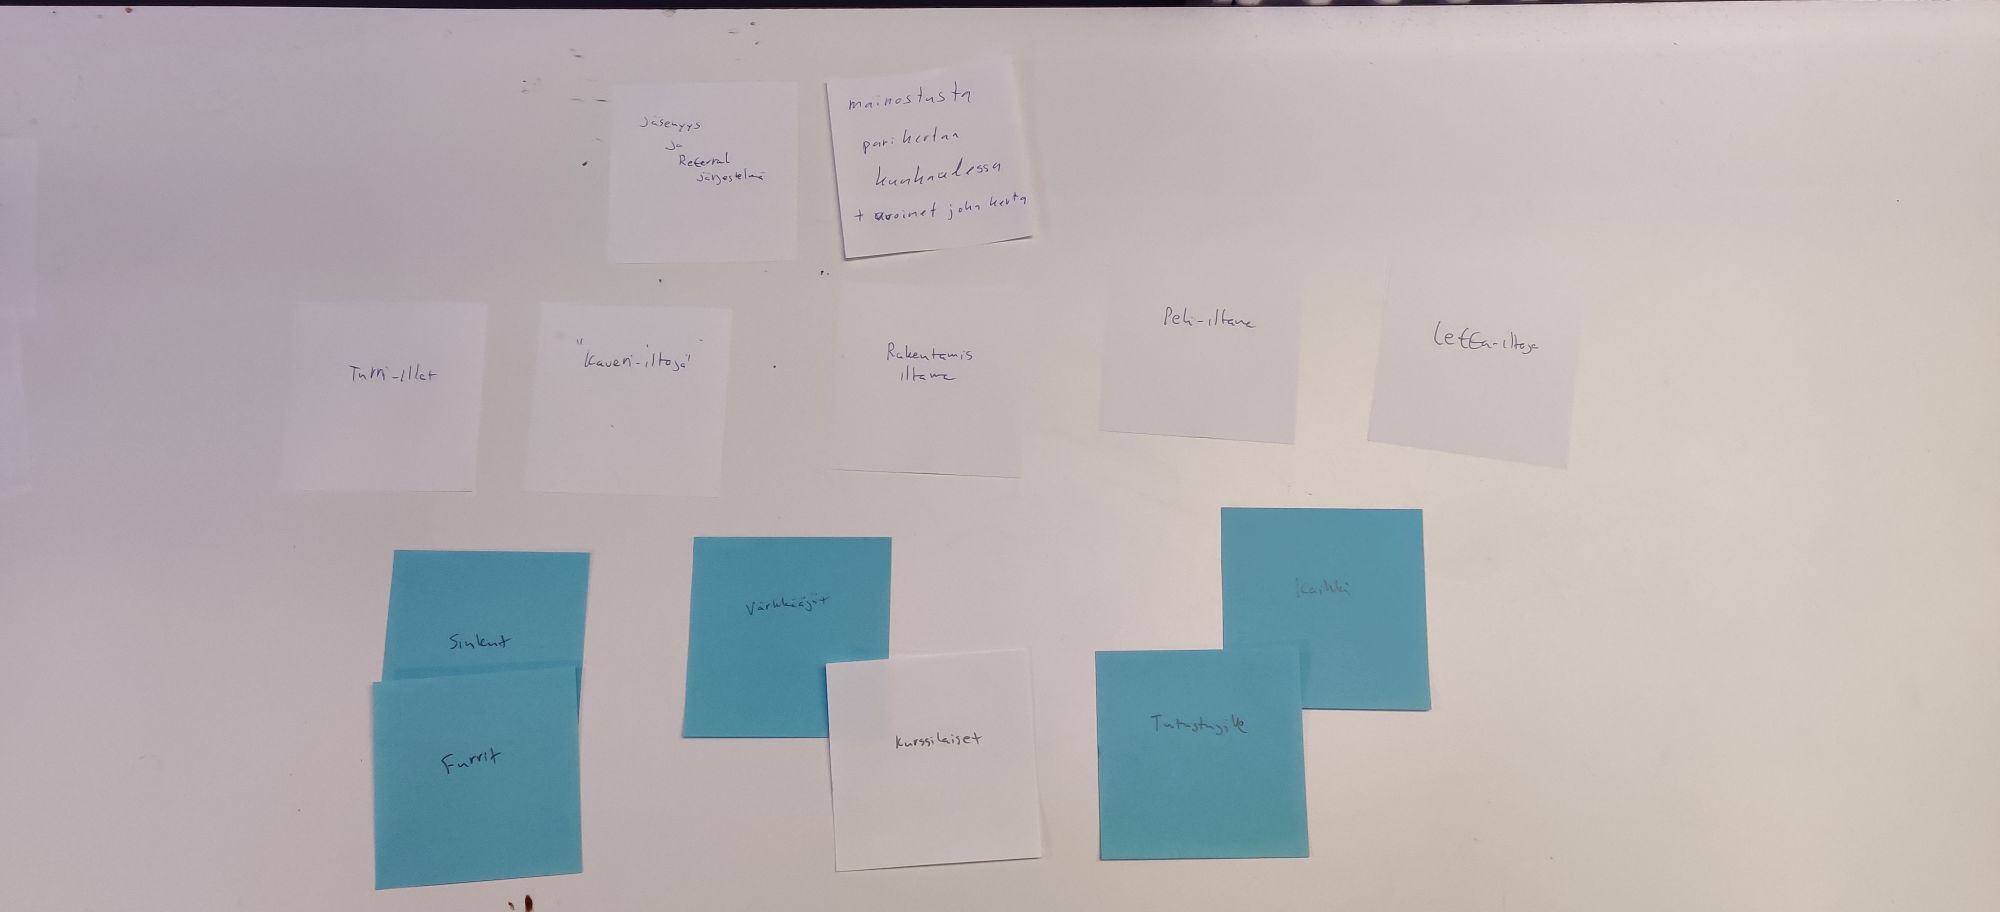 Jäsenyys
ja
Referral
järjestelmä
mainostusta
pari kertaa
kuukaudessa
+ avoimet joka kerta
Turri-illat
"Kaveri-iltoja"
Rakentamis
iltama
Peli-iltama
Leffa-iltoja
Sinkut
Furrit
Värkkääjät
Kurssilaiset
Kaikki